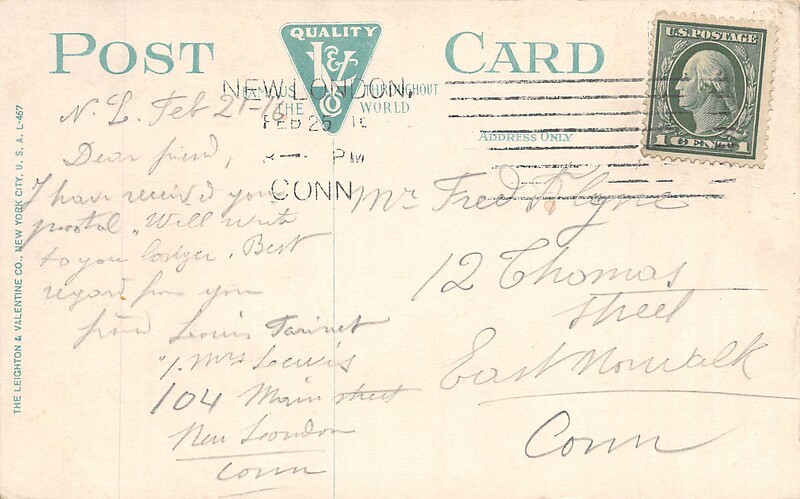 POST CARD
QUALITY
L&V Co
FAMOUS THROUGHOUT
THE WORLD
ADDRESS ONLY
U.S. POSTAGE
1 1
NEW LONDON,
FEB 25
PM
CONN
THE LEIGHTON & VALENTINE CO., NEW YORK CITY, U. S. A. L-467
N. L. Feb
Dear friend,
I have received your
postal. Will write
to you . Best
regard from you
friend Louis
Mrs Lewis
104 Main street
New London
Conn
Mr Fred
12 Thomas
Street
East Norwalk
Conn